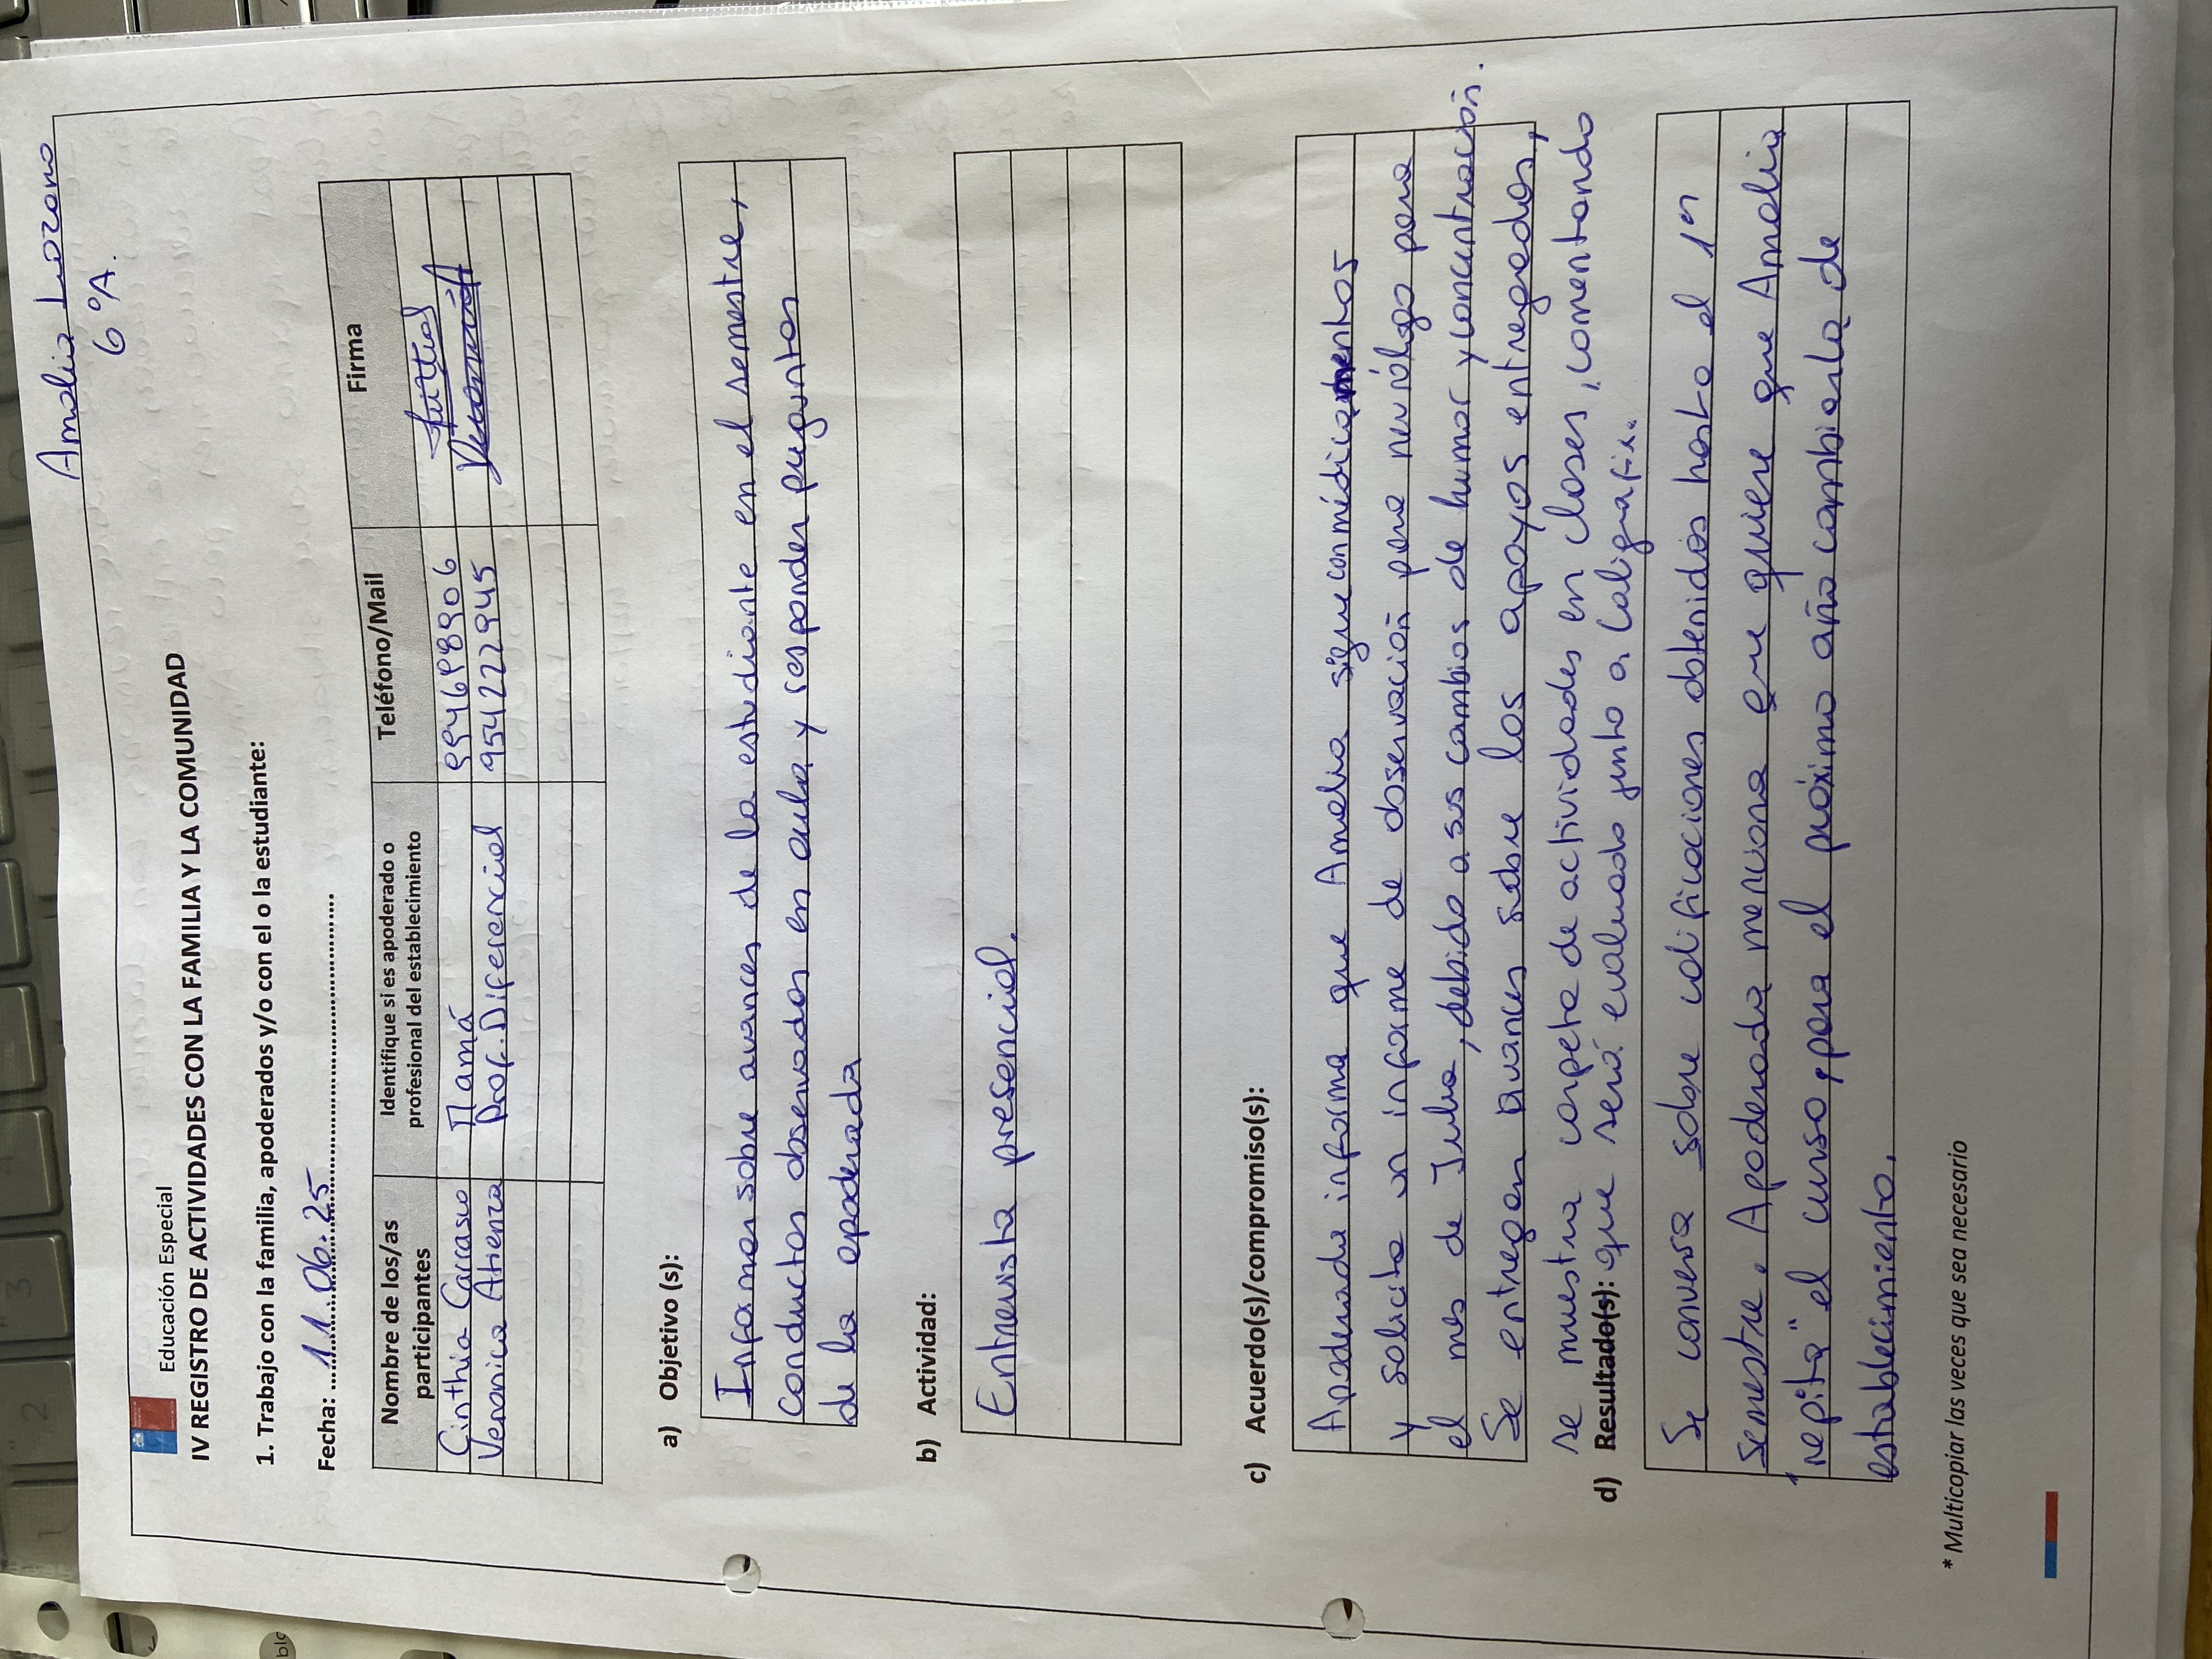 Amalia Lozano
6°A.
Educación Especial
IV REGISTRO DE ACTIVIDADES CON LA FAMILIA Y LA COMUNIDAD
1. Trabajo con la familia, apoderados y/o con el o la estudiante:
Fecha: 11.06.25
Nombre de los/as participantes Identifique si es apoderado o profesional del establecimiento Teléfono/Mail Firma
Cinthia Carrasco Mamá
Veronica Atienza Prof. Diferencial 954222945
a) Objetivo (s):
Informar sobre avances de la estudiante en el semestre,
conductas observadas en aula y responder preguntas
de la apoderada
b) Actividad:
Entrevista presencial.
c) Acuerdo(s)/compromiso(s):
Apoderada informa que Amalia sigue con medicamentos
y solicita un informe de observación para neurólogo para
el mes de Julio, debido a sus cambios de humor y concentración.
Se entregan avances sobre los apoyos entregados,
se muestra carpeta de actividades en clases, comentando
d) Resultado(s): que será evaluado junto a caligrafix.
Se conversa sobre calificaciones obtenidas hasta el 1er
semestre. Apoderada menciona que quiere que Amalia
"repita" el curso, para el próximo año cambiarla de
establecimiento.
* Multicopiar las veces que sea necesario